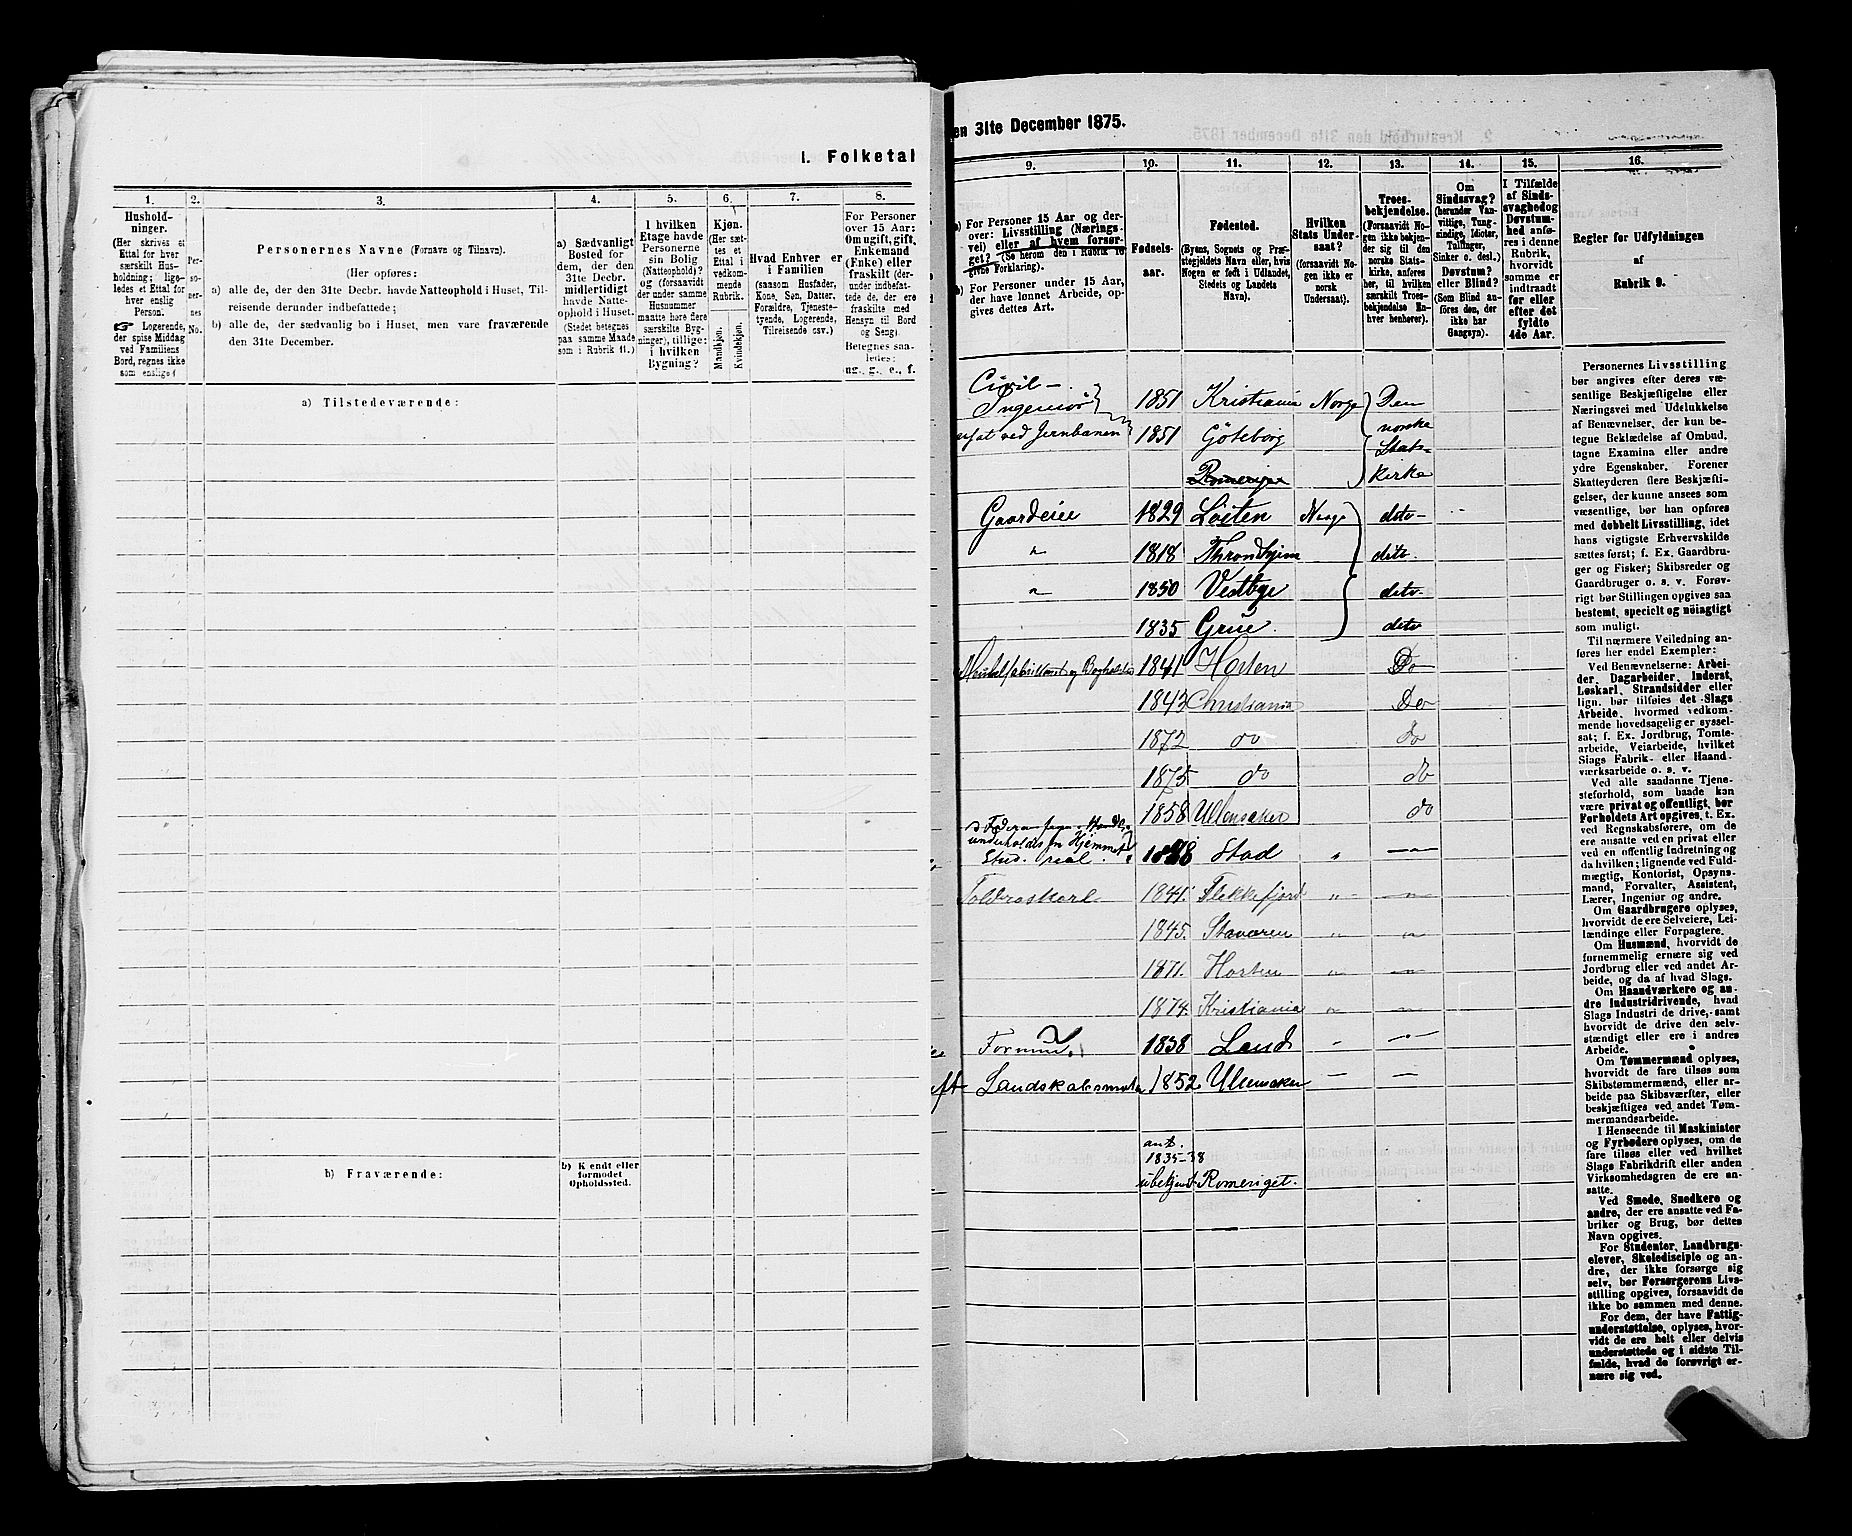 I. Folketal
1.
2.
3.
4.
5.
6.
7.
8.
Hushold-
ninger.
(Her skrives et
Ettal for hver
særskilt Hus-
holdning; lige-
ledes et Ettal for
hver enslig
Person.
☞ Logerende,
der spise Middag
ved Familiens
Bord, regnes ikke
som enslige.)
Per-
so-
ner-
nes
No.
Personernes Navne (Fornavn og Tilnavn).
(Her opføres:
a) alle de, der den 31te Decbr. havde Natteophold i Huset, Til-
reisende derunder indbefattede;
b) alle de, der sædvanlig bo i Huset, men vare fraværende
den 31te December.
a) Sædvanligt
Bosted for
dem, der den
31te Decbr.
midlertidigt
havde Natte-
ophold i Huset.
(Stedet betegnes
paa samme Maade
som i Rubrik 11.)
I hvilken
Etage havde
Personerne
sin Bolig
(Natteophold)?
og (forsaavidt
der under samme
Husnummer
maatte høre flere
særskilte Byg-
ninger), tillige:
i hvilken
Bygning?
Kjøn.
(Her sæt-
tes et
Ettal i
vedkom-
mende
Rubrik.
Mandkjøn.
Kvindekjøn.
Hvad Enhver er
i Familien
(saasom Husfader,
Kone, Søn, Datter,
Forældre, Tjeneste-
tyende, Logerende,
Tilreisende osv.)
For Personer
over 15 Aar:
Om ugift, gift,
Enkemand
(Enke) eller
fraskilt (der-
under indbefat-
tede de, der ere
fraskilte med
Hensyn til Bord
og Seng)
Betegnes saa-
ledes:
ug., g., e., f.
a) Tilstedeværende:
b) Fraværende:
b) Kjendt eller
formodet
Opholdssted.
en 31te December 1875.
9.
10.
11.
12.
13.
14.
15.
16.
a) For Personer 15 Aar og der-
over: Livsstilling (Nærings-
vei) eller af hvem forsør-
get? (Se herom den i Rubrik 16
givne Forklaring).
b) For Personer under 15 Aar,
der have lønnet Arbeide, op-
gives dettes Art.
Fødsels-
aar.
Fødested.
(Byens, Sognets og Præ-
stegjeldets Navn eller, hvis
Nogen er født i Udlandet,
Stedets og Landets
Navn).
Hvilken
Stats Under-
saat?
(forsaavidt No-
gen ikke er
norsk
Undersaat).
Troes-
bekjendelse.
(Forsaavidt No-
gen ikke bekjen-
der sig til den
norske Stats-
kirke, anføres
her, til hvilken
særskilt Troes-
bekjendelse En-
hver henhører).
Om
Sindssvag?
(herunder Van-
vittige, Tung-
sindige, Idioter,
Tullinger,
Sinker o. desl.)
Døvstum?
eller Blind?
(Som Blind an-
føres den, der
ikke har
Gangsyn).
I Tilfælde
af Sinds-
svaghed og
Døvstum-
hed anfø-
res i denne
Rubrik,
hvorvidt
samme er
indtraadt
før eller
efter det
fyldte
4de Aar.
Regler for Udfyldningen
af
Rubrik 9.
Civil-
Ingeniør 1851 Kristiania Norge Den
ansat ved Jernbanen 1851 Göteborg norske
Stats-
Romeriget kirke
Gaardeier 1829 Löiten Norge dito
" 1818 Throndhjem dito
" 1850 Vestbye dito
1835 Grue. dito
1841 Horten Do
1843 Christiania Do
1872 do do
1875 do do
1858 Ullensaker do
underholdes fra Hjemmet
Stud. real. Stad "
Toldroskarl 1841. Flekkefjord " "
1845. Staværen " "
1871. Horten " "
1874. Kristiania " "
1838 Land
Landskabsmaler 1852 Ullensaker
ant.
1835-38
ubekjent Romeriget.
Personernes Livsstilling
bør angives efter deres væ-
sentlige Beskjæftigelse eller
Næringsvei med Udelukkelse
af Benævnelser, der kun be-
tegne Beklædelse af Ombud,
tagne Examina eller andre
ydre Egenskaber. Forener
Skatteyderen flere Beskjæfti-
gelser, der kunne ansees som
væsentlige, bør han opføres
med dobbelt Livsstilling, idet
hans vigtigste Erhvervskilde
sættes først; f. Ex. Gaardbru-
ger og Fisker; Skibsreder og
Gaardbruger o. s. v. Forøv-
rigt bør Stillingen opgives saa
bestemt, specielt og nøiagtigt
som muligt.
Til nærmere Veiledning an-
føres her endel Exempler:
Ved Benævnelserne: Arbei-
der, Dagarbeider, Inderst,
Løskarl, Strandsidder eller
lign. bør tilføies det Slags
Arbeide, hvormed vedkom-
mende hovedsagelig er syssel-
sat; f. Ex. Jordbrug, Tomte-
arbeide, Veiarbeide, hvilket
Slags Fabrik- eller Haand-
værksarbeide o. s. v.
Ved alle saadanne Tjene-
steforhold, som baade kan
være privat og offentligt, bør
Forholdets Art opgives, t. Ex.
ved Regnskabsførere, om de
ere ansatte ved en privat eller
ved en offentlig Indretning og
da hvilken; lignende ved Fuld-
mægtig, Kontorist, Opsyns-
mand, Forvalter, Assistent,
Lærer, Ingeniør og andre.
Om Gaardbrugere oplyses,
hvorvidt de ere Selveiere, Lei-
lændinge eller Forpagtere.
Om Husmænd, hvorvidt de
fornemmelig ernære sig ved
Jordbrug eller ved andet Ar-
beide, og da af hvad Slags.
Om Haandværkere og an-
dre Industridrivende, hvad
Slags Industri de drive, samt
hvorvidt de drive den selv-
stændigt eller ere i andres
Arbeide.
Om Tømmermænd oplyses,
hvorvidt de fare tilsøs som
Skibstømmermænd, eller ar-
beide paa Skibsværfter, eller
beskjæftiges ved andet Tøm-
mermandsarbeide.
I Henseende til Maskinister
og Fyrbødere oplyses, om de
fare tilsøs eller ved hvilket
Slags Fabrikdrift eller anden
Virksomhedsgren de ere an-
satte.
Ved Smede, Snedkere og
andre, der ere ansatte ved Fa-
briker og Brug, bør dettes
Navn opgives.
For Studenter, Landbrugs-
elever, Skoledisciple og an-
dre, der ikke forsørge sig
selv, bør Forsørgerens Livs-
stilling opgives, forsaavidt de
ikke bo sammen med denne.
For dem, der have Fattig-
understøttelse, oplyses, hvor-
vidt de ere helt eller delvis
understøttede og i sidste Til-
fælde, hvad de forøvrigt er-
nære sig ved.